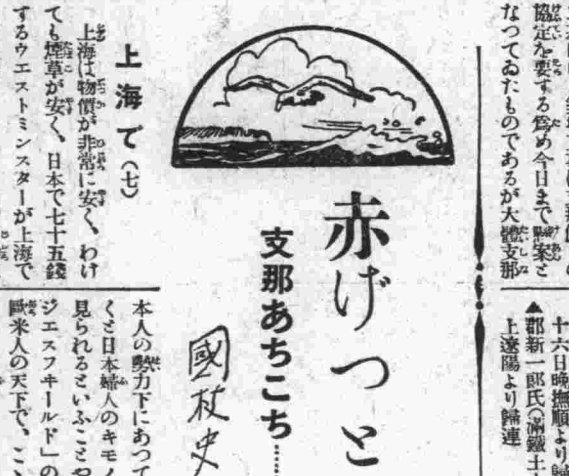 協定を要する爲め今日まで懸案と
なつてゐたものであるが大體支那
十六日晩撫順より歸
▲郡新一郎氏(滿鐵士
上遼陽より歸連
赤げつと
支那あちこち……
國枝史
上海で(七)
上海は物價が非常に安く、わけ
ても煙草が安く、日本で七十五錢
するウエストミンスターが上海で
本人の勢力下にあつて
くと日本婦人のキモノ
見られるといふことや
ジエスフキールド」の
歐米人の天下で、ここ